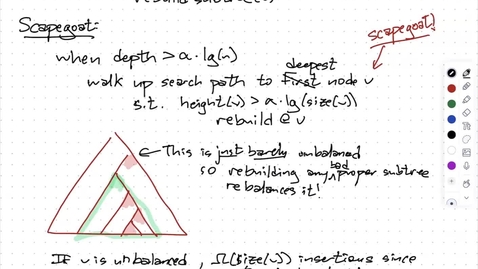 rebuild subtree(v)
Scapegoat:
scapegoat!
when depth > α·lg(n)
deepest
walk up search path to first node v
s.t. height(v) > α·lg(size(v))
rebuild @ v
← This is just barely unbalanced
so rebuilding any bad proper subtree
rebalances it!
If v is unbalanced, Ω(size(v)) insertions since